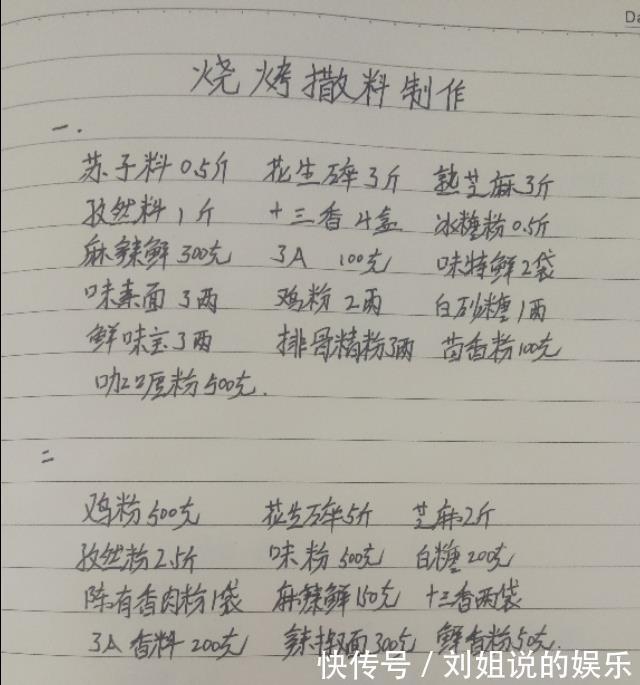 Da
烧烤撒料制作
一.
苏子料0.5斤 花生碎3斤 熟芝麻3斤
孜然料1斤 十三香4盒 冰糖粉0.5斤
麻辣鲜300克 3A 100克 味特鲜2袋
味素面3两 鸡粉2两 白砂糖1两
鲜味宝3两 排骨精粉3两 茴香粉100克
咖喱粉500克.
二
鸡粉500克 花生碎5斤 芝麻2斤
孜然粉2.5斤 味粉500克 白糖200克
陈有香肉粉1袋 麻辣鲜150克 十三香两袋
3A香料200克 辣椒面300克 鲜香粉50克.
快传号/刘姐说的娱乐